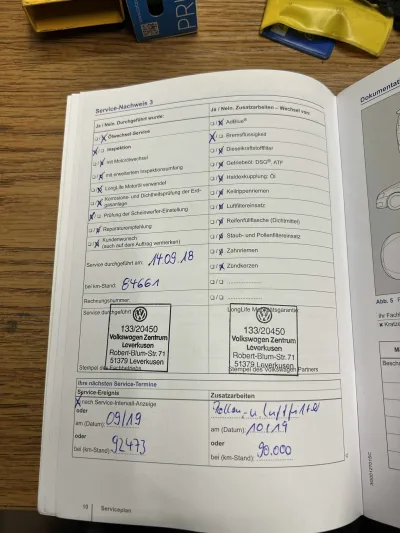 PRI
Service-Nachweis 3
Ja / Nein. Durchgeführt wurde:
Ölwechsel-Service
Inspektion
mit Motorölwechsel
mit erweitertem Inspektionsumfang
LongLife Motoröl verwendet
Korrosions- und Dichtheitsprüfung der Erdgasanlage
Prüfung der Scheinwerfer-Einstellung
Reparaturempfehlung
Kundenwunsch
(auch auf dem Auftrag vermerken)
Service durchgeführt am: 14.09.18
bei km-Stand: 84661
Rechnungsnummer:
Service durchgeführt
133/20450
Volkswagen Zentrum
Leverkusen
Robert-Blum-Str. 71
51379 Leverkusen
Stempel des Fachbetriebs
Ja / Nein. Zusatzarbeiten – Wechsel von:
AdBlue®
Bremsflüssigkeit
Dieselkraftstofffilter
Getriebeöl: DSG®, ATF
Haldexkupplung: Öl
Keilrippenriemen
Luftfiltereinsatz
Reifenfüllflasche (Dichtmittel)
Staub- und Pollenfiltereinsatz
Zahnriemen
Zündkerzen
LongLife Mobilitätsgarantie
133/20450
Volkswagen Zentrum
Leverkusen
Robert-Blum-Str. 71
51379 Leverkusen
Stempel des Volkswagen Partners
Ihre nächsten Service-Termine
Service-Ereignis
nach Service-Intervall-Anzeige
oder
am (Datum): 09/19
oder
bei (km-Stand): 92473
Zusatzarbeiten
Pollen- u. Luftfilter
am (Datum): 10/19
oder
bei (km-Stand): 90.000
18 Serviceplan
Dokumentat
Abb. 5
Ihr Fachb
Kratze
M
Beschr